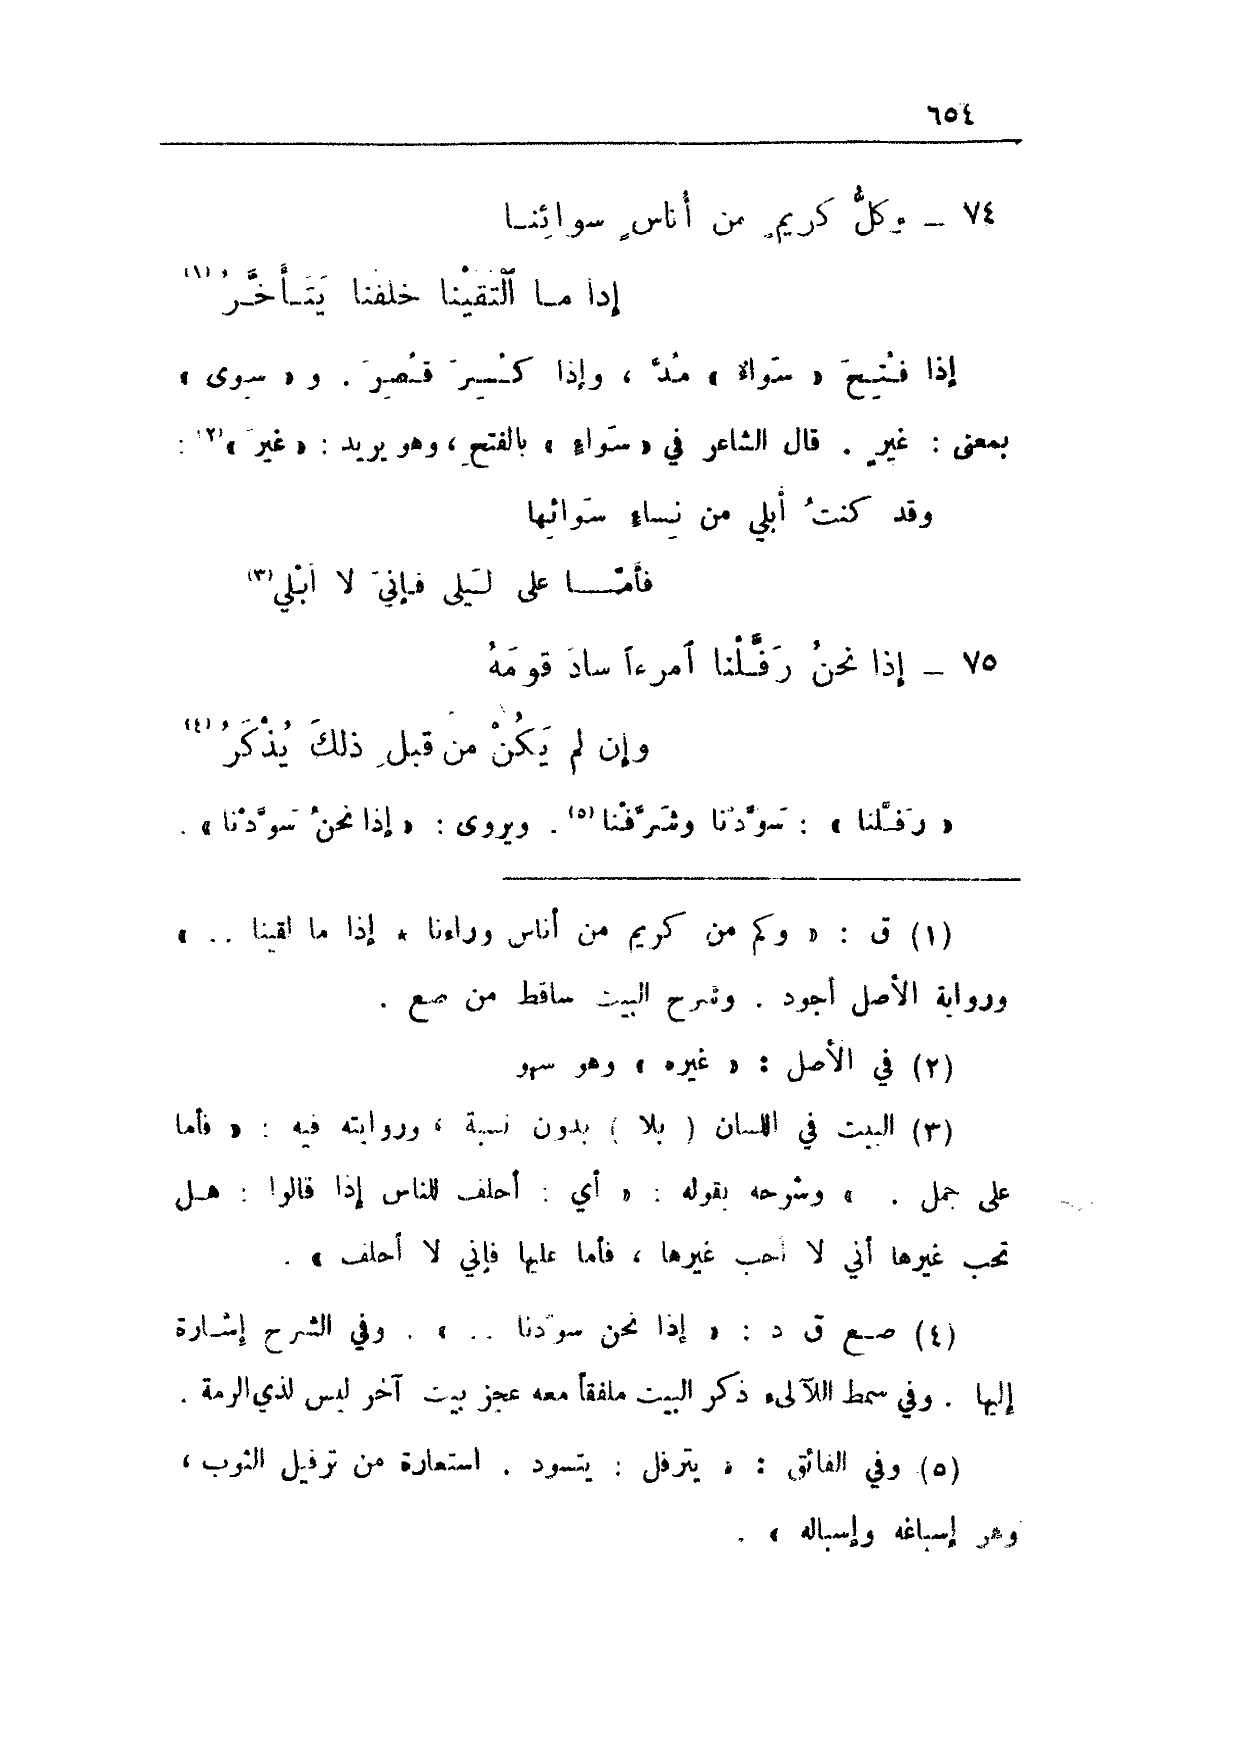 ٦٥٤
٧٤ ـ وكلُّ كريمٍ من أُناسٍ سوائِنا
إذا ما ٱلتقيْنا خلفنا يَتَأخَّرُ (١)
إذا فُتِحَ « سَواءٌ » مُدَّ ، وإذا كُسِرَ قُصِرَ . و « سِوى »
بمعنى : غيرٍ . قال الشاعر في « سَواءٍ » بالفتحِ ، وهو يريد : « غيرَ » (٢) :
وقد كنتُ أُبلي من نِساءٍ سَوائِها
فأمّا على لَيلى فإنيَ لا أبْلي (٣)
٧٥ ـ إذا نحنُ رَفَّلْنا ٱمرءاً سادَ قومَهُ
وإن لم يَكُنْ من قبلِ ذلكَ يُذْكَرُ (٤)
« رَفَّلنا » : سَوَّدْنا وشَرَّفْنا (٥) . ويروى : « إذا نحنُ سَوَّدْنا » .
(١) ق : « وكم من كريم من أناس وراءنا * إذا ما لقينا .. »
ورواية الأصل أجود . وشرح البيت ساقط من صع .
(٢) في الأصل : « غيره » وهو سهو
(٣) البيت في اللسان ( بلا ) بدون نسبة ، وروايته فيه : « فأما
على جمل . » وشرحه بقوله : « أي : أحلف للناس إذا قالوا : هل
تحب غيرها أني لا أحب غيرها ، فأما عليها فإني لا أحلف » .
(٤) صع ق د : « إذا نحن سوّدنا .. » . وفي الشرح إشارة
إليها . وفي سمط اللآلىء ذكر البيت ملفقاً معه عجز بيت آخر ليس لذي الرمة .
(٥) وفي الفائق : « يترفل : يتسود . استعارة من ترفيل الثوب ،
وهو إسباغه وإسباله » .